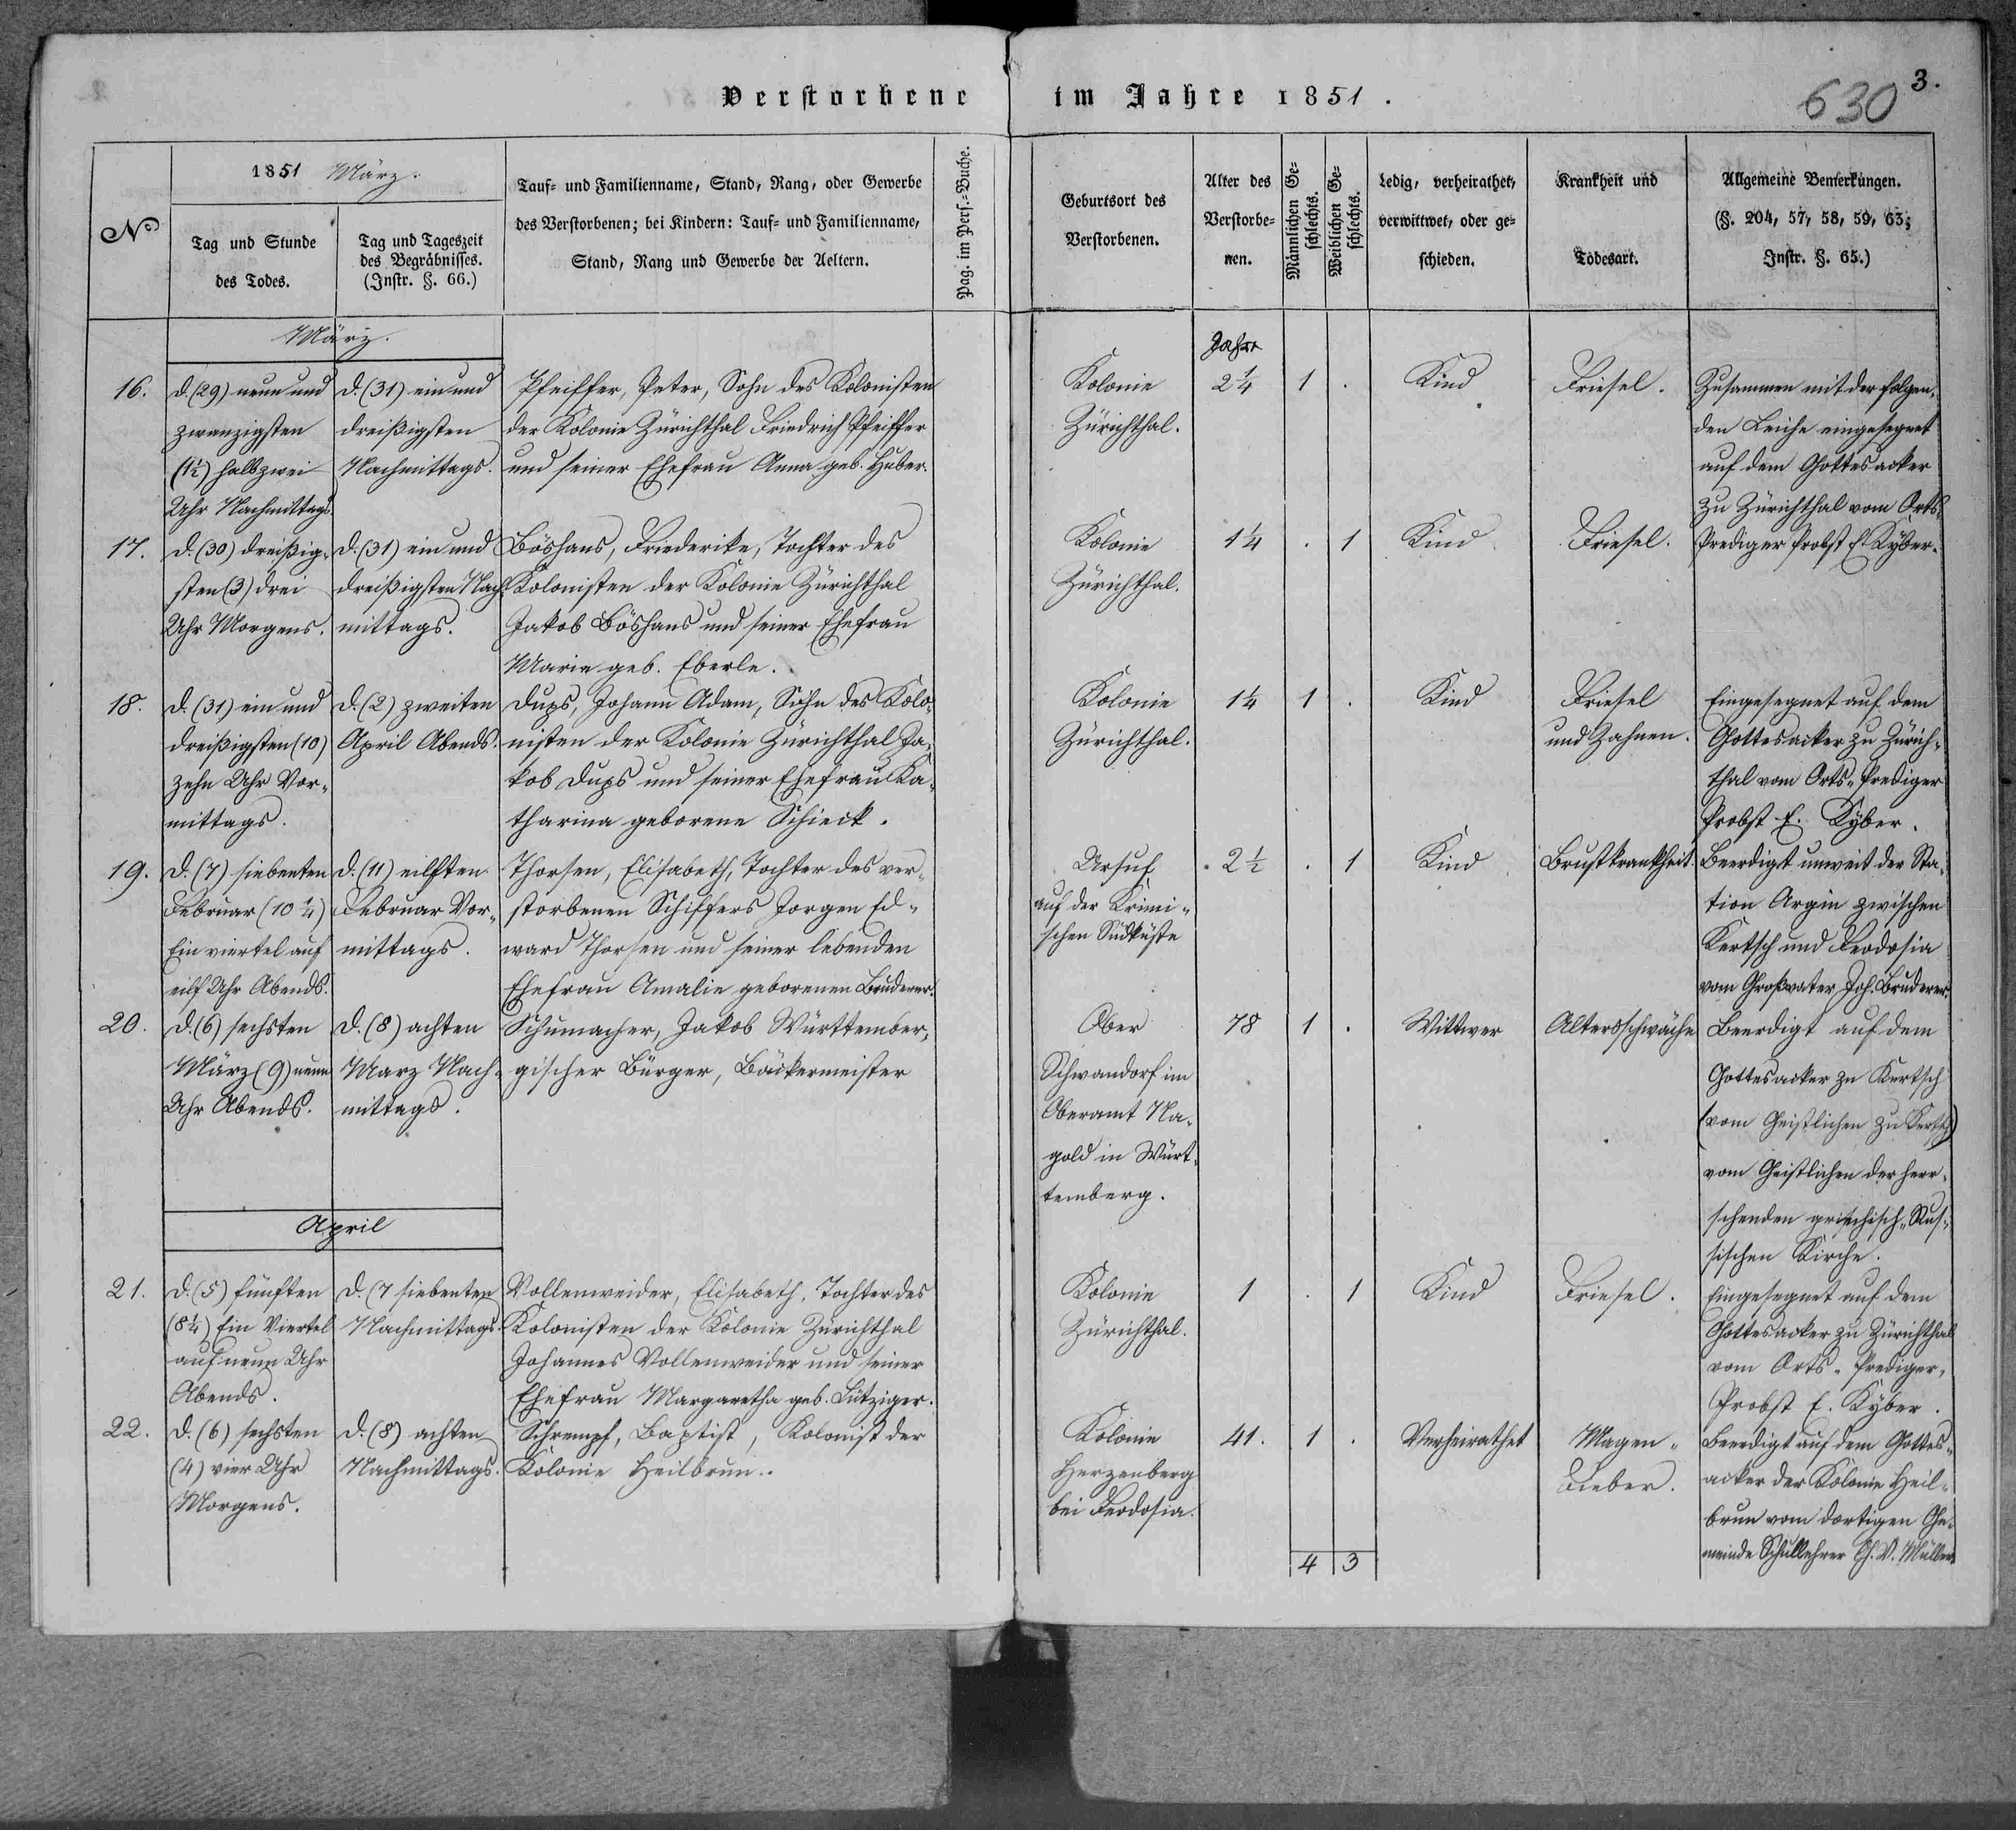 Verstorbene im Jahre 1851.
3.
630
No
1851 März.
Tag und Stunde
des Todes.
Tag und Tageszeit
des Begräbnisses.
(Instr. §. 66.)
Tauf= und Familienname, Stand, Rang, oder Gewerbe
des Verstorbenen; bei Kindern: Tauf= und Familienname,
Stand, Rang und Gewerbe der Aeltern.
Pag. im Pers.=Buche.
Geburtsort des
Verstorbenen.
Alter des
Verstorbe=
nen.
Männlichen Ge=
schlechts.
Weiblichen Ge=
schlechts.
Ledig, verheirathet,
verwittwet, oder ge=
schieden.
Krankheit und
Todesart.
Allgemeine Bemerkungen.
(§. 204, 57, 58, 59, 63;
Instr. §. 65.)
März.
Jahre
16.
d. (29) neun und
zwanzigsten
(1½) halb zwei
Uhr Nachmittags.
d. (31) ein und
dreißigsten
Nachmittags.
Pfeiffer, Peter, Sohn des Kolonisten
der Kolonie Zürichthal Friedrich Pfeiffer
und seiner Ehefrau Anna geb. Huber.
Kolonie
Zürichthal.
2¼
1 .
Kind
Friesel.
Zusammen mit der folgen-
den Leiche eingesegnet
auf dem Gottesacker
zu Zürichthal vom Orts-
Prediger Probst E. Kyber.
17.
d. (30) dreißig-
sten (3) drei
Uhr Morgens.
d. (31) ein und
dreißigsten Nach-
mittags.
Böshans, Friederike, Tochter des
Kolonisten der Kolonie Zürichthal
Jakob Böshans und seiner Ehefrau
Maria geb. Eberle.
Kolonie
Zürichthal.
1¼
. 1
Kind
Friesel.
18.
d. (31) ein und
dreißigsten (10)
zehn Uhr Vor-
mittags.
d. (2) zweiten
April Abends.
Dups, Johann Adam, Sohn des Kolo-
nisten der Kolonie Zürichthal Ja-
kob Dups und seiner Ehefrau Ka-
tharina geborene Schieck.
Kolonie
Zürichthal.
1¼
1 .
Kind
Friesel
und Zahnen.
Eingesegnet auf dem
Gottesacker zu Zürich-
thal vom Orts-Prediger
Probst E. Kyber.
19.
d. (7) siebenten
Februar (10¼)
Ein viertel auf
eilf Uhr Abends.
d. (11) eilften
Februar Vor-
mittags.
Thorsen, Elisabeth, Tochter des ver-
storbenen Schiffers Jorgen Ed-
ward Thorsen und seiner lebenden
Ehefrau Amalie geborenen Bruderer.
Ursuf
auf der Krimi-
schen Südküste
2½
. 1
Kind
Brustkrankheit.
Beerdigt unweit der Sta-
tion Argin zwischen
Kertsch und Feodosia
vom Großvater Joh. Bruderer.
20.
d. (6) sechsten
März (9) neun
Uhr Abends.
d. (8) achten
Marz Nach-
mittags.
Schumacher, Jakob Württember-
gischer Bürger, Bäckermeister
Ober
Schwandorf im
Oberamt Na-
gold in Würt-
temberg.
78
1 .
Wittwer
Altersschwäche
Beerdigt auf dem
Gottesacker zu Kertsch
(vom Geistlichen zu Kertsch)
vom Geistlichen der herr-
schenden griechisch-Rus-
sischen Kirche.
April
21.
d. (5) fünften
(8¼) Ein Viertel
auf neun Uhr
Abends.
d. (7 siebenten
Nachmittags.
Vollenweider, Elisabeth, Tochter des
Kolonisten der Kolonie Zürichthal
Johannes Vollenweider und seiner
Ehefrau Margaretha geb. Lütziger.
Kolonie
Zürichthal.
1
. 1
Kind
Friesel.
Eingesegnet auf dem
Gottesacker zu Zürichthal
vom Orts-Prediger,
Probst E. Kyber.
22.
d. (6) sechsten
(4) vier Uhr
Morgens.
d. (8) achten
Nachmittags.
Schrempf, Baptist, Kolonist der
Kolonie Heilbrun.
Kolonie
Herzenberg
bei Feodosia.
41.
1 .
Verheirathet
Magen-
Fieber.
Beerdigt auf dem Gottes-
acker der Kolonie Heil-
brun vom dortigen Ge-
meinde Schullehrer Müller.
4 3